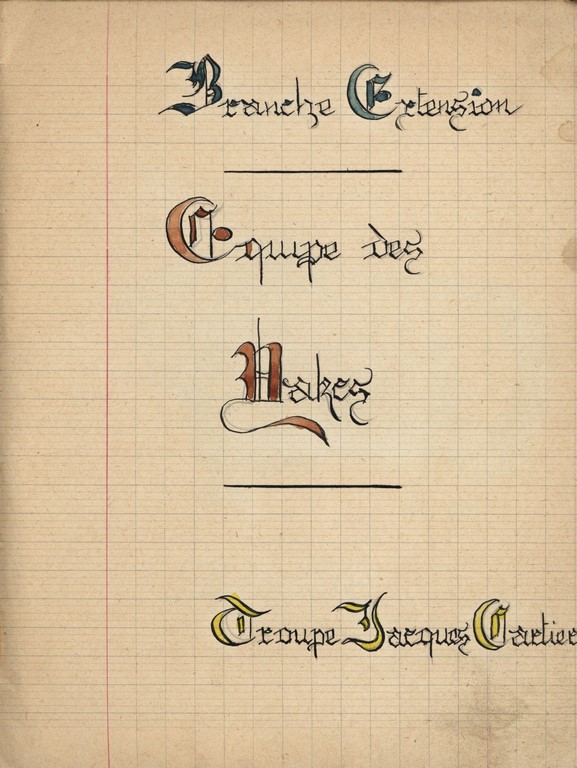 Branche Extension
Equipe des
Makes
Troupe Jacques Cartier